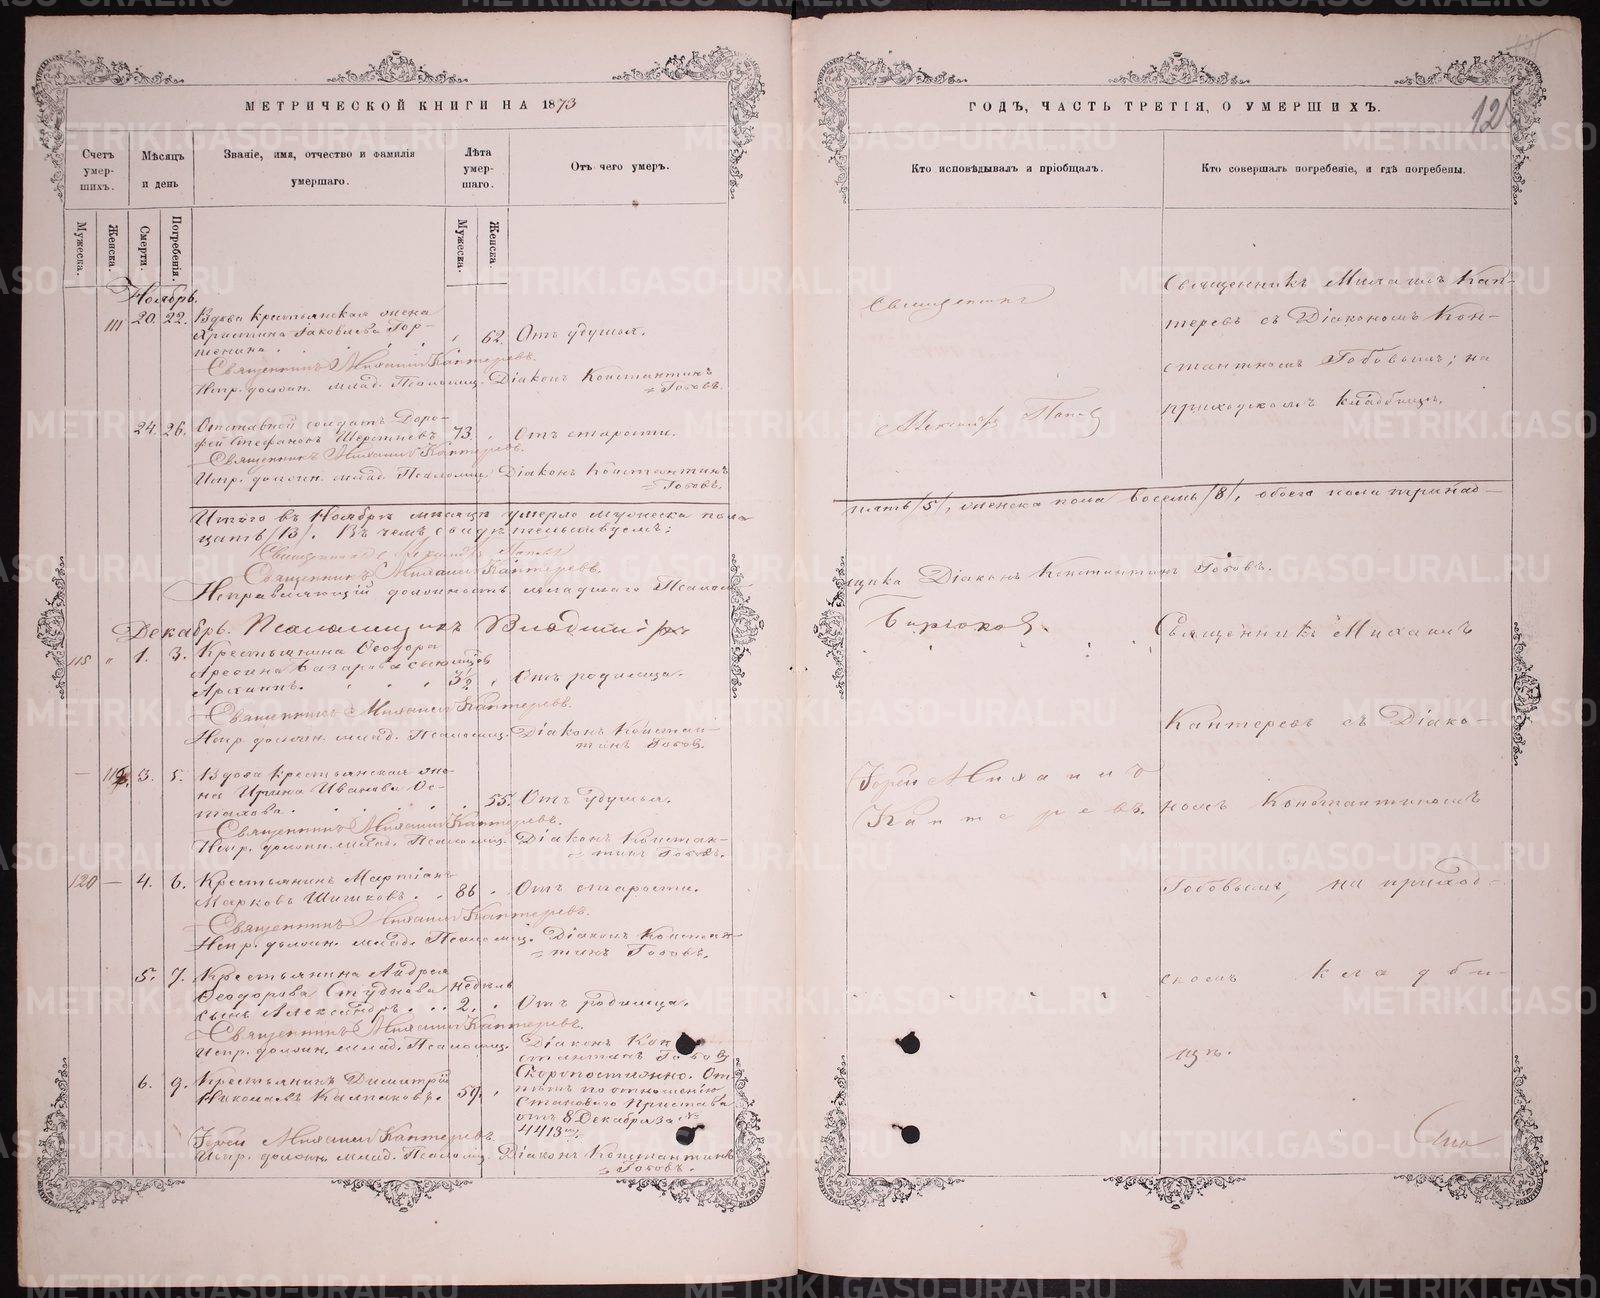 МЕТРИЧЕСКОЙ КНИГИ НА 1873
Счетъ умерших.
Мѣсяцъ и день
Званіе, имя, отчество и фамилія умершаго.
Лѣта умершаго.
Отъ чего умеръ.
Мужеска.
Женска.
Смерти.
Погребенія.
Мужеска.
Женска
Ноябрь.
111 20. 22. Вдова крестьянская жена
Христина Іаковлева Гор-
62. Отъ удушья.
Священникъ Михаилъ Каптеревъ.
Испр. должн. млад. Псаломщ. Діаконъ Константинъ
Гобовъ.
24. 26. Отставной солдатъ Доро-
фей Стефановъ Шерстневъ 73. Отъ старости.
Священникъ Михаилъ Каптеревъ.
Испр. должн. млад. Псаломщ. Діаконъ Константинъ
Гобовъ.
Итого въ Ноябрѣ мѣсяцѣ умерло мужеска пола
цать /13/. Въ чемъ свидѣтельствуемъ:
Священникъ Михаилъ Каптеревъ.
Исправляющій должность младшаго Псалом
Декабрь. Псаломщикъ Владиміръ
115 " 1. 3. Крестьянина Ѳеодора
Архиппъ. 3½ Отъ родимца.
Священникъ Михаилъ Каптеревъ.
Испр. должн. млад. Псаломщ. Діаконъ Констан-
тинъ Гобовъ.
3. 5. Вдова крестьянская же-
на Ирина Иванова Ос-
55. Отъ удушья.
Священникъ Михаилъ Каптеревъ.
Испр. должн. млад. Псаломщ. Діаконъ Констан-
тинъ Гобовъ.
120 — 4. 6. Крестьянинъ Мартіанъ
Марковъ Шигиновъ. 86 Отъ старости.
Священникъ Михаилъ Каптеревъ.
Испр. должн. млад. Псаломщ. Діаконъ Констан-
тинъ Гобовъ.
5. 7. Крестьянина Андрея
Ѳеодорова Студнева недѣль
сынъ Александръ. 2. Отъ родимца.
Священникъ Михаилъ Каптеревъ.
Испр. должн. млад. Псаломщ. Діаконъ Кон
стантинъ Гобовъ
6. 9. Крестьянинъ Димитрій
Николаевъ Калпаковъ. 59. Скоропостижно. От
пѣтъ по отношенію
Становаго Пристава
отъ 8 Декабря за №
4413
Іерей Михаилъ Каптеревъ.
Испр. должн. млад. Псаломщ. Діаконъ Константинъ
Гобовъ.
ГОДЪ, ЧАСТЬ ТРЕТІЯ, О УМЕРШИХЪ.
12
Кто исповѣдывалъ и пріобщалъ.
Кто совершалъ погребеніе, и гдѣ погребены.
Священникъ
Александръ Поповъ
Священникъ Михаилъ Кап-
теревъ съ Діакономъ Кон-
стантиномъ Гобовымъ; на
приходскомъ кладбищѣ.
пять /5/, женска пола восемь /8/, обоего пола тринад-
щика Діаконъ Константинъ Гобовъ.
Бирюковъ.
Священникъ Михаилъ
Каптеревъ съ Діако-
Іерей Михаилъ
Каптеревъ.
номъ Константиномъ
Гобовымъ, на приход-
скомъ кладби-
щѣ.
METRIKI.GASO-URAL.RU